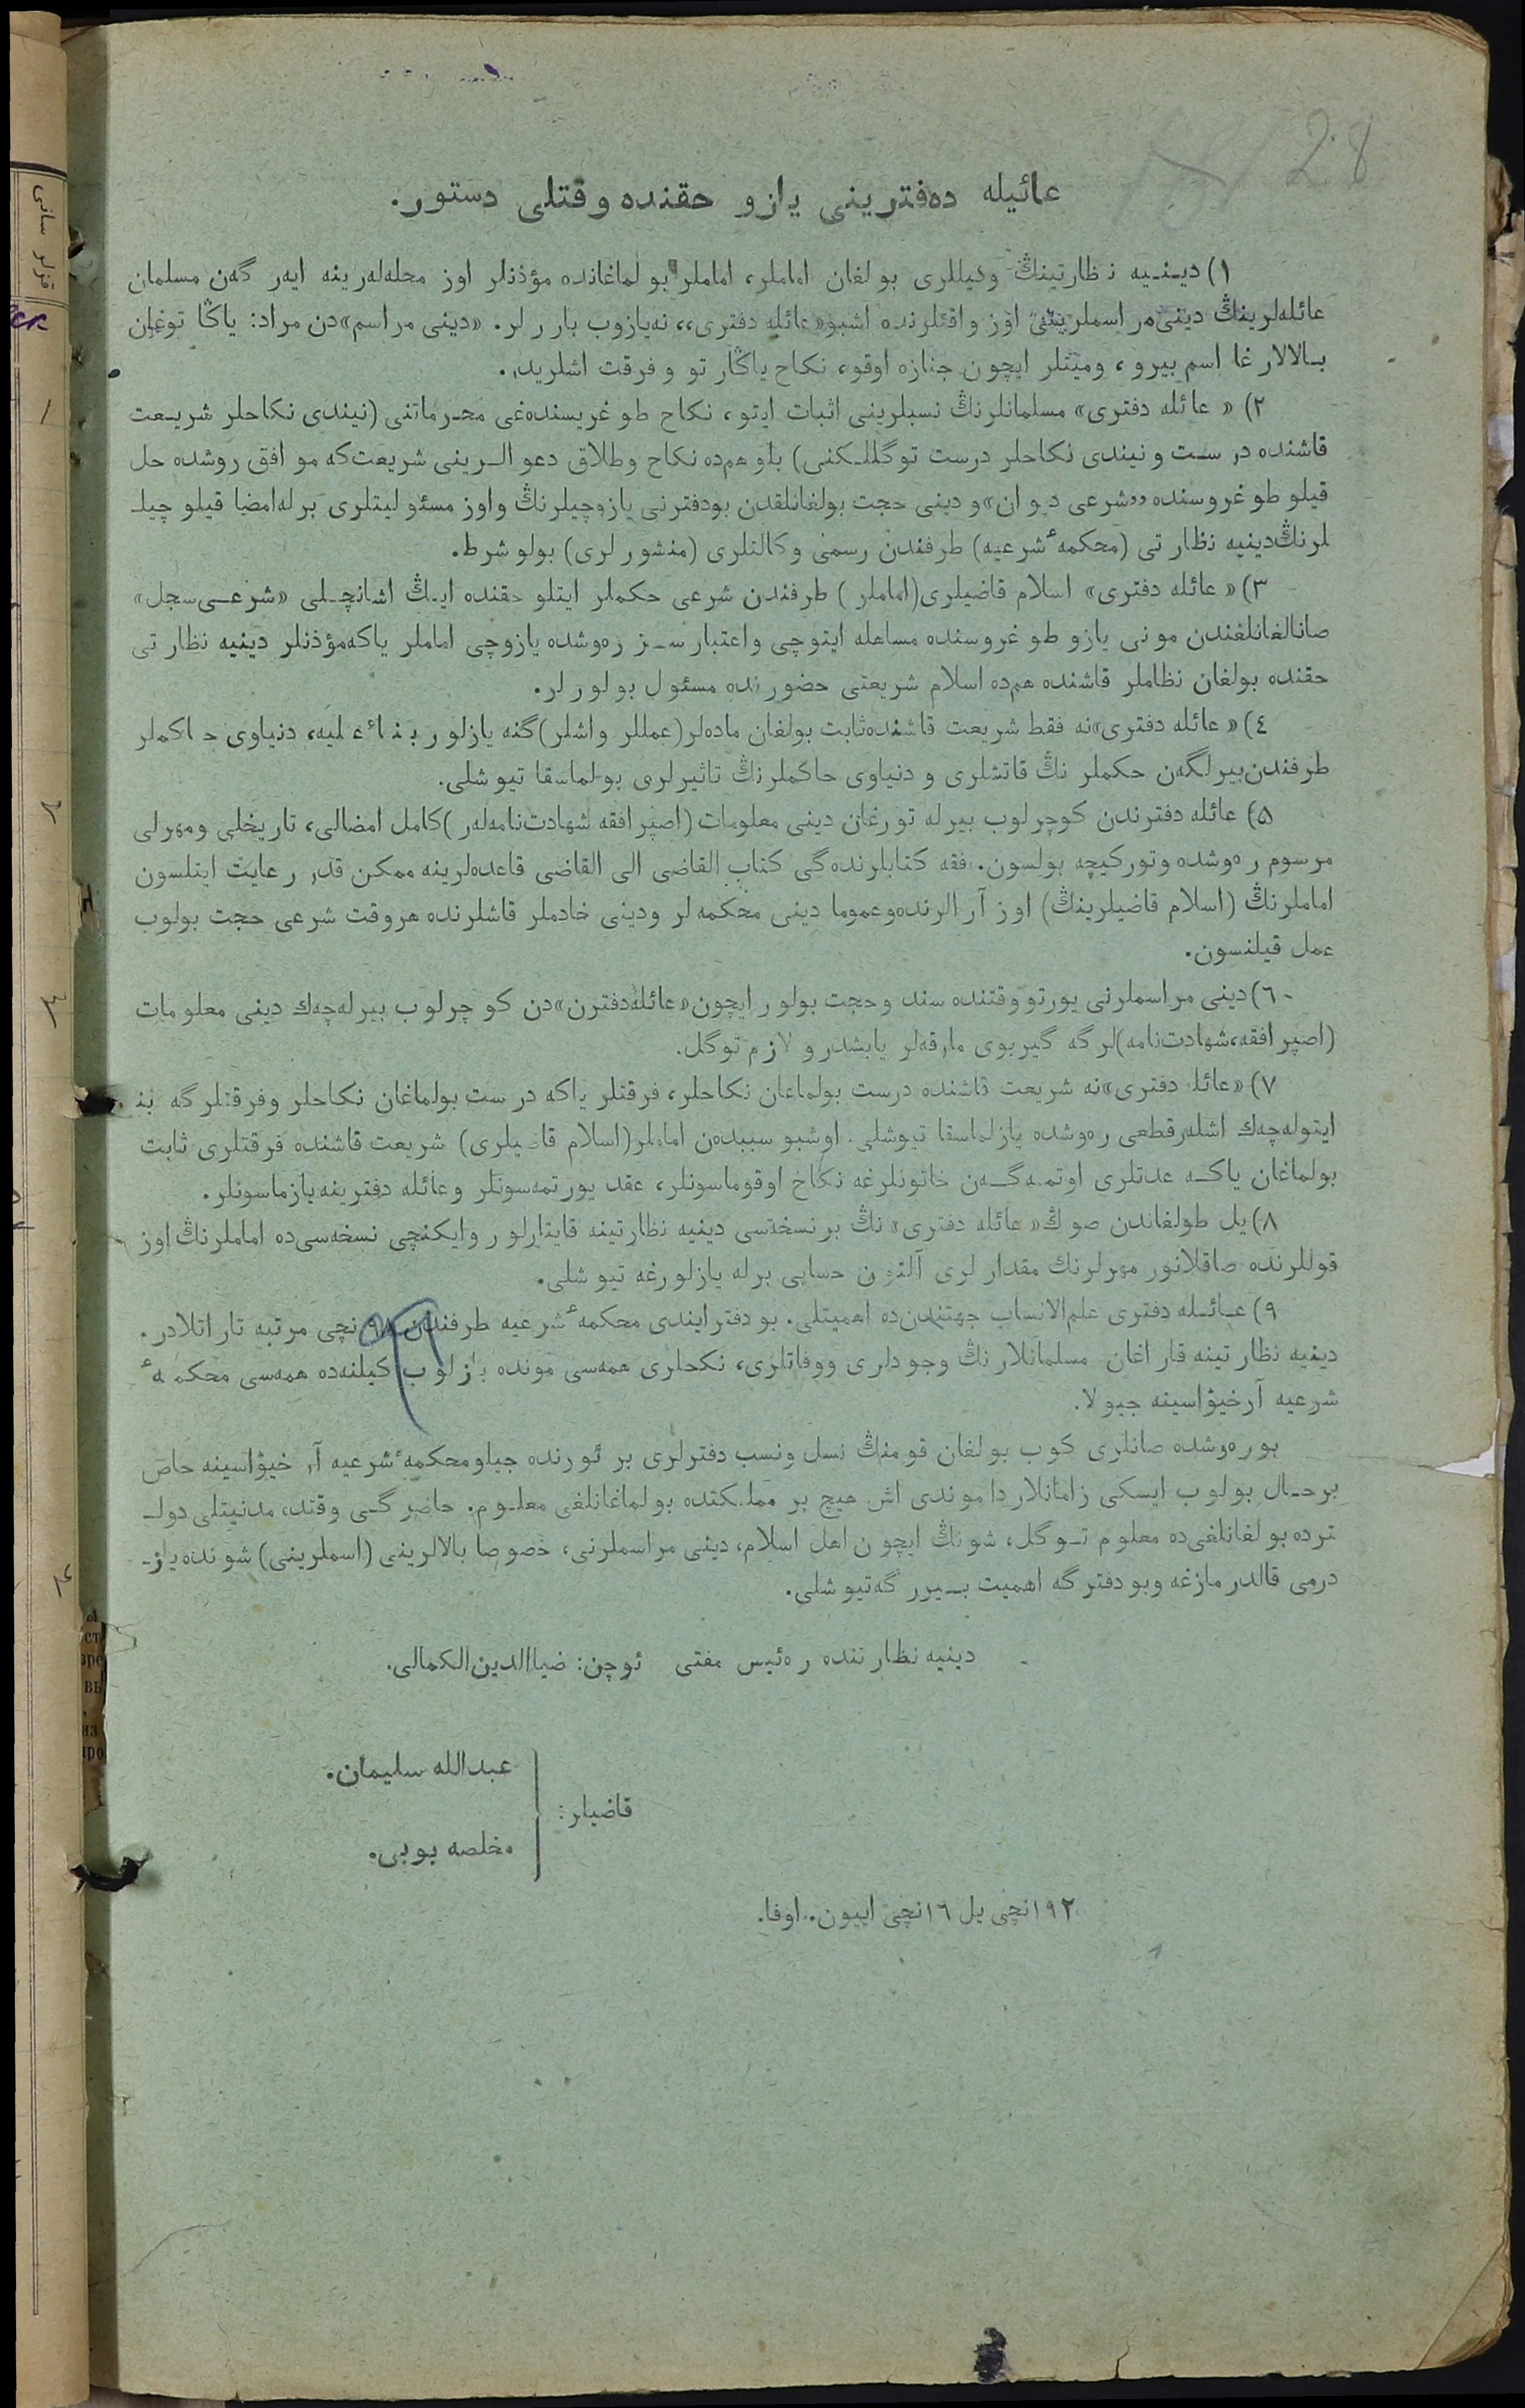 28
عائیله دەفترینی یازو حقنده وقتلی دستور.
۱) دینیه نظارتینڭ وکیللری بولغان اماملر، اماملر بولماغانده مؤذنلر اوز محله‌لەرینه ایەرگەن مسلمان
عائله‌لرینڭ دینی مراسملرینی اوز واقتلرنده اشبو «عائله دفتری» نه یازوب باررلر. «دینی مراسم» دن مراد: یاڭا توغان
بالالارغا اسم بیرو، ومیتلر ایچون جنازه اوقو، نکاح یاڭارتو و فرقت اشلریدر.
۲) «عائله دفتری» مسلمانلرنڭ نسبلرینی اثبات ایتو، نکاح طوغریسنده‌غی محرماتنی (نیندی نکاحلر شریعت
قاشنده درست و نیندی نکاحلر درست توگللکنی) بلو هم‌ده نکاح وطلاق دعوالرینی شریعت‌که موافق روشده حل
قیلو طوغروسنده «شرعی دیوان» و دینی حجت بولغانلقدن بودفترنی یازوچیلرنڭ واوز مسئولیتلری برله امضا قیلوچیلـ
لرنڭ دینیه نظارتی (محکمهٔ شرعیه) طرفندن رسمی وکالتلری (منشورلری) بولو شرط.
۳) «عائله دفتری» اسلام قاضیلری (اماملر) طرفندن شرعی حکملر ایتلو حقنده ایڭ اشانچلی «شرعی سجل»
صانالغانلغندن مونی یازو طوغروسنده مساهله ایتوچی واعتبارسز رەوشده یازوچی اماملر یاکه مؤذنلر دینیه نظارتی
حقنده بولغان نظاملر قاشنده هم‌ده اسلام شریعتی حضورنده مسئول بولورلر.
٤) «عائله دفتری» نه فقط شریعت قاشنده ثابت بولغان ماده‌لر (عمللر واشلر) گنه یازلور بناءً علیه، دنیاوی حاکملر
طرفندن بیرلگەن حکملرنڭ قاتشلری و دنیاوی حاکملرنڭ تاثیرلری بولماسقا تیوشلی.
۵) عائله دفترندن کوچرلوب بیرله تورغان دینی معلومات (اصپرافقه شهادت‌نامه‌لەر) کامل امضالی، تاریخلی ومهرلی
مرسوم رەوشده وتورکیچه بولسون. فقه کتابلرنده‌گی کتاب القاضی الی القاضی قاعده‌لرینه ممکن قدر رعایت ایتلسون
اماملرنڭ (اسلام قاضیلرینڭ) اوز آرالرنده وعموما دینی محکمه‌لر ودینی خادملر قاشلرنده هروقت شرعی حجت بولوب
عمل قیلنسون.
٦) دینی مراسملرنی یورتو وقتنده سند وحجت بولور ایچون «عائله دفترن» دن کوچرلوب بیرله‌چەك دینی معلومات
(اصپرافقه، شهادت‌نامه) لرگه گیربوی مارقه‌لر یابشدرو لازم توگل.
۷) «عائله دفتری» نه شریعت قاشنده درست بولماغان نکاحلر، فرقتلر یاکه درست بولماغان نکاحلر وفرقتلرگه بنا
ایتوله‌چەك اشلەر قطعی رەوشده یازلماسقا تیوشلی. اوشبو سببدەن اماملر (اسلام قاضیلری) شریعت قاشنده فرقتلری ثابت
بولماغان یاکه عدتلری اوتمەگەن خاتونلرغه نکاح اوقوماسونلر، عقد یورتمەسونلر وعائله دفترینه یازماسونلر.
۸) یل طولغاندن صوڭ «عائله دفتری» نڭ برنسخه‌سی دینیه نظارتینه قایتارلور وایکنچی نسخه‌سی‌ده اماملرنڭ اوز
قوللرنده صاقلانور مهرلرنك مقدارلری آلتون حسابی برله یازلورغه تیوشلی.
۹) عائله دفتری علم‌الانساب جهتندن‌ده اهمیتلی. بو دفتر ایندی محکمهٔ شرعیه طرفندن ۹۸ نچی مرتبه تاراتلادر.
دینیه نظارتینه قاراغان مسلمانلارنڭ وجودلری ووفاتلری، نکحلری همه‌سی مونده یازلوب کیلنه‌ده همه‌سی محکمهٔ
شرعیه آرخیۋاسینه جیولا.
بورەوشده صانلری کوب بولغان قومنڭ نسل ونسب دفترلری بر ئورنده جیلو محکمهٔ شرعیه آرخیۋاسینه خاص
برحال بولوب ایسکی زامانلاردا موندی اش هیچ بر مملکتده بولماغانلغی معلوم. حاضرگی وقتده، مدنیتلی دولـ
تردە بولغانلغی‌ده معلوم توگل، شونڭ ایچون اهل اسلام، دینی مراسملرنی، خصوصا بالالرینی (اسملرینی) شونده یازـ
درمی قالدرمازغه وبو دفترگه اهمیت بیررگه تیوشلی.
دینیه نظارتنده رەئیس مفتی ئوچن: ضیاالدین الکمالی.
قاضیلر:
عبدالله سلیمان.
مخلصه بوبی.
۱۹۲ نچی یل ۱٦ نچی اییون. اوفا.